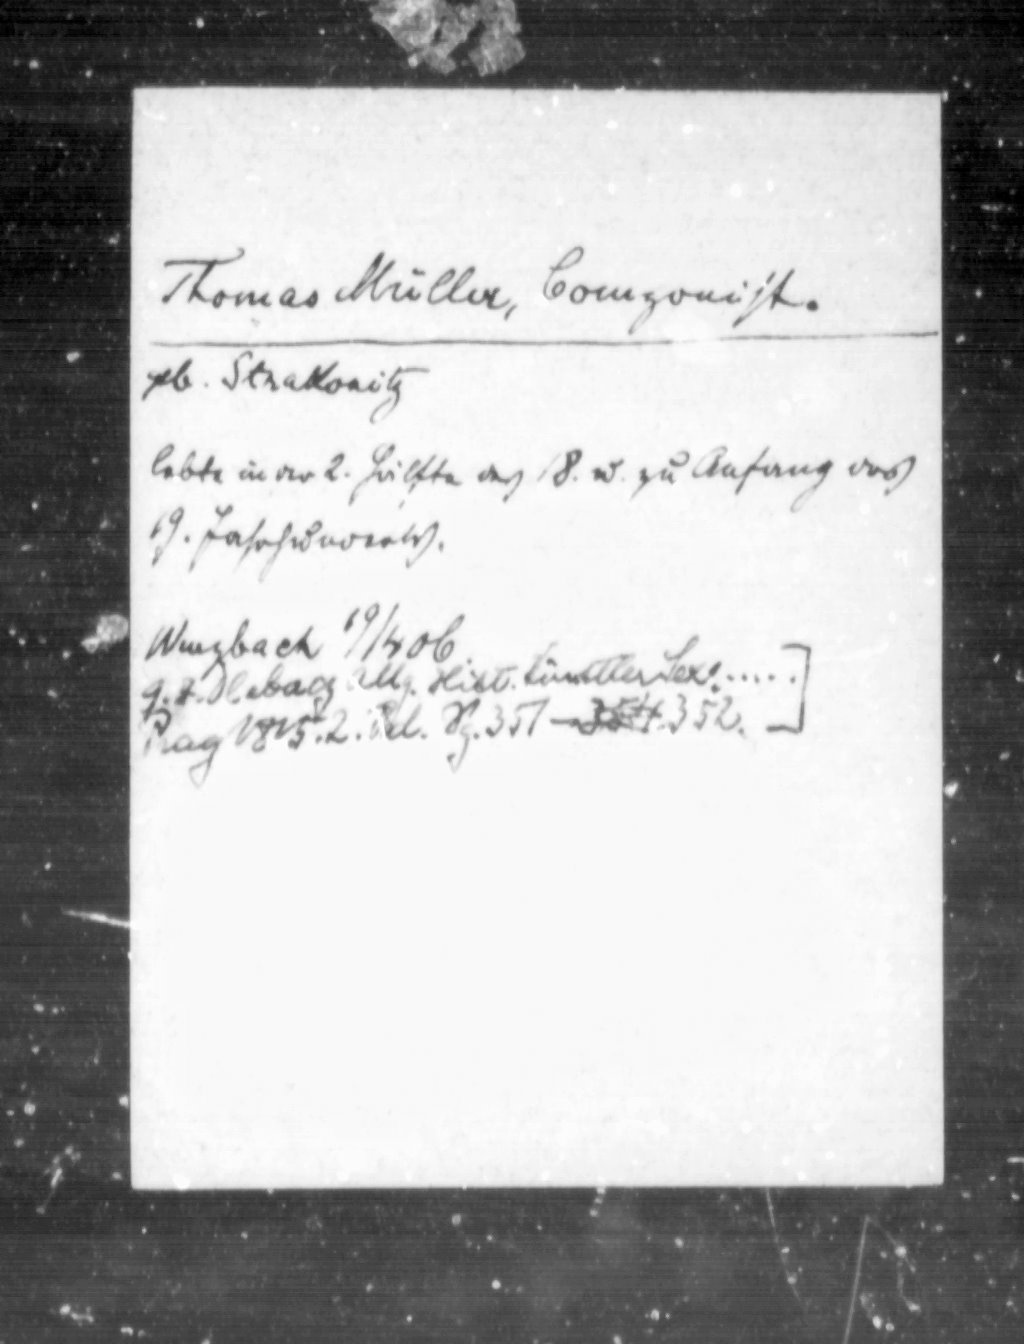 Thomas Müller, Componist.
gb. Strakonitz
lebte in der 2. Hälfte des 18. u. zu Anfang des
19. Jahrhunderts.
Wurzbach 19/406
G. J. Dlabacz Allg. Hist. Künstler Lex. .....
Prag 1815. 2. Bd. Sp. 351 — 352.